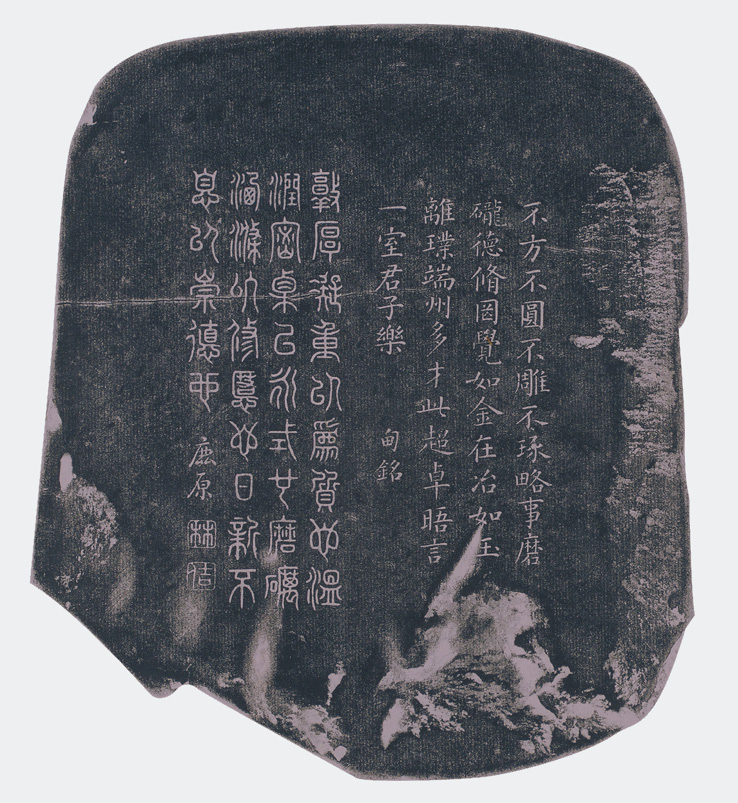 不方不圓不雕不琢略事磨
礲德脩罔覺如金在冶如玉
離璞端州多才此超卓晤言
一室君子樂 甸銘
敦厚凝重以為質也溫
潤密栗式磨礪
涵滌以修慝也日新不
息以崇德也 鹿原 林佶